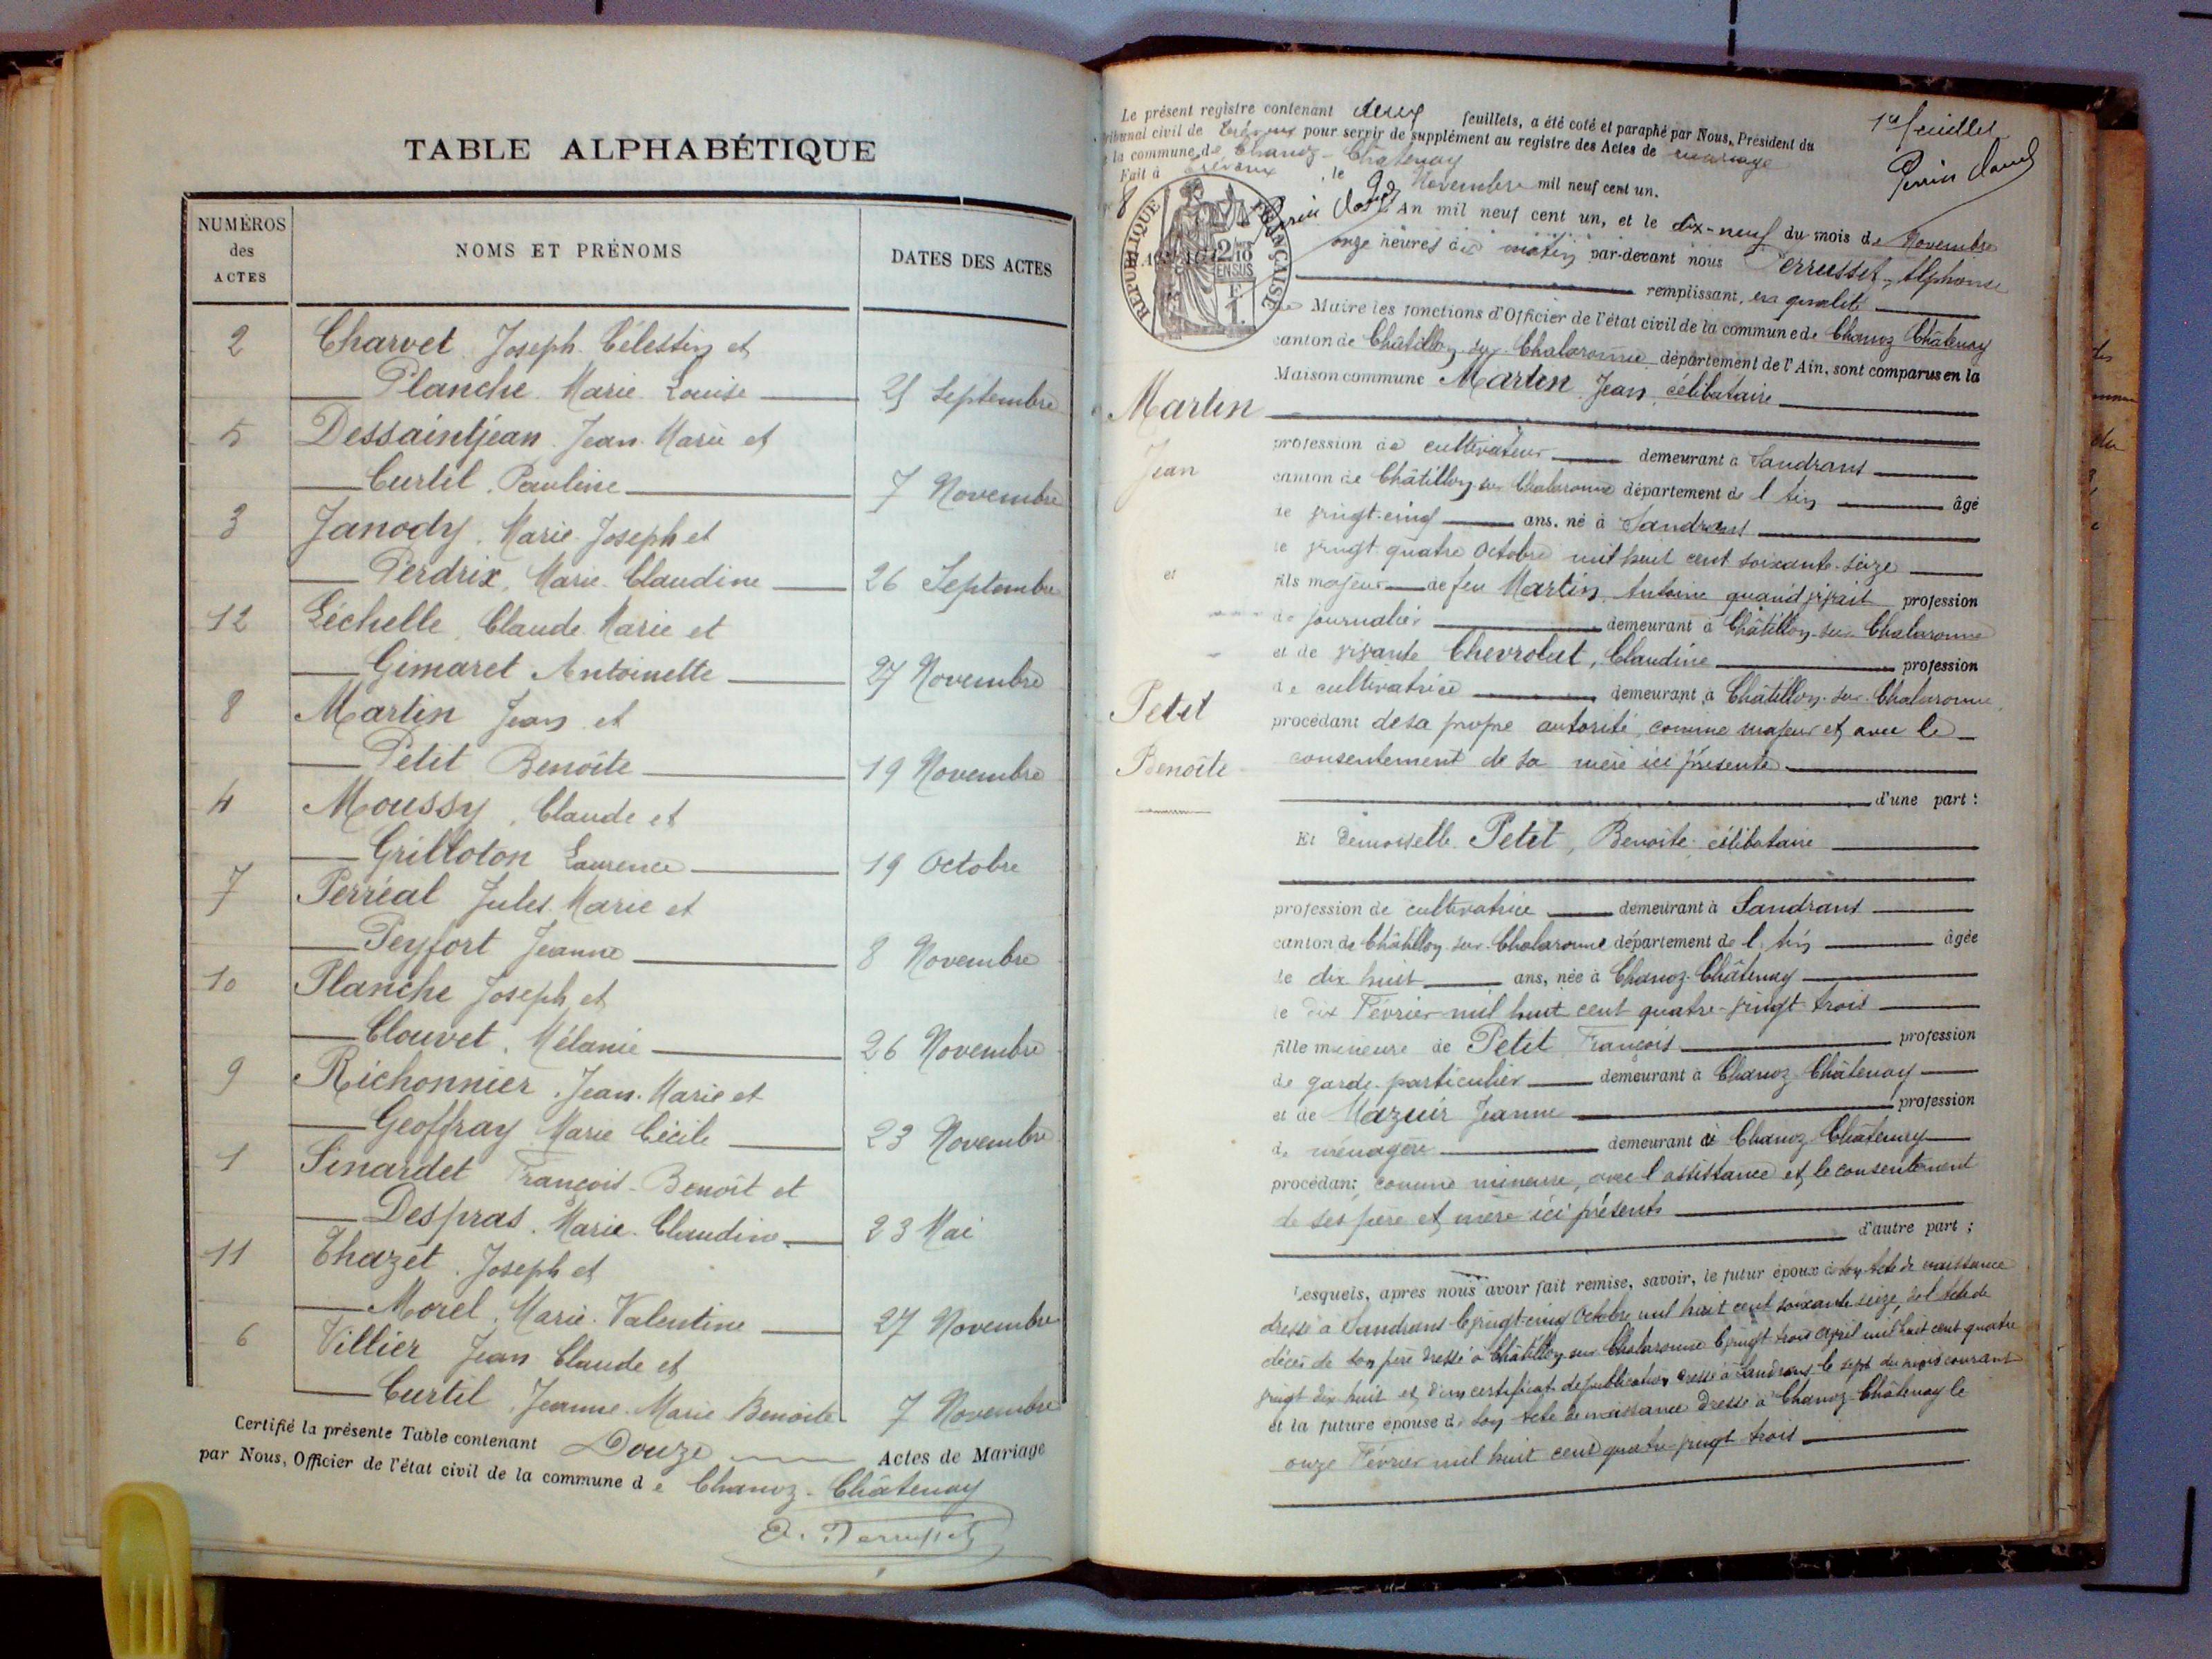 TABLE ALPHABÉTIQUE
NUMÉROS des ACTES
NOMS ET PRÉNOMS
DATES DES ACTES
2 Charvet Joseph Célestin et
Planche Marie Louise 25 Septembre
5 Dessaintjean Jean Marie et
Curtil Pauline 7 Novembre
3 Janody Marie Joseph et
Perdrix Marie Claudine 26 Septembre
12 Léchelle Claude Marie et
Gimaret Antoinette 27 Novembre
8 Martin Jean et
Petit Benoîte 19 Novembre
4 Moussy Claude et
Grilloton Laurence 19 Octobre
7 Perréal Jules Marie et
Peyfort Jeanne 8 Novembre
10 Planche Joseph et
Clouvet Mélanie 26 Novembre
9 Richonnier Jean Marie et
Geoffray Marie Cécile 23 Novembre
1 Sinardet François Benoît et
Despras Marie Claudine 23 Mai
11 Chazet Joseph et
Morel Marie Valentine 27 Novembre
6 Villier Jean Claude et
Curtil Jeanne Marie Benoite 7 Novembre
Certifié la présente Table contenant Douze Actes de Mariage
par Nous, Officier de l'état civil de la commune de Chanoz-Châtenay
1er feuillet
Le présent registre contenant deux feuillets, a été coté et paraphé par Nous, Président du
tribunal civil de Trévoux pour servir de supplément au registre des Actes de mariage
la commune de Chanoz-Châtenay
Fait à Trévoux, le 9 Novembre mil neuf cent un.
8
RÉPUBLIQUE FRANÇAISE
2/10 EN SUS
F. 1.
An mil neuf cent un, et le dix-neuf du mois de Novembre
onze heures du matin par-devant nous Perrusset, Alphonse
remplissant, en qualité
de Maire les fonctions d'Officier de l'état civil de la commune de Chanoz Châtenay
canton de Châtillon-sur-Chalaronne département de l'Ain, sont comparus en la
Maison commune Martin Jean célibataire
Martin
Jean
et
Petit
Benoîte
profession de cultivateur demeurant à Sandrans
canton de Châtillon-sur-Chalaronne département de l'Ain âgé
de vingt-cinq ans, né à Sandrans
le vingt quatre Octobre mil huit cent soixante-seize
fils majeur de feu Martin Antoine quand vivait profession
de journalier demeurant à Châtillon-sur-Chalaronne
et de vivante Chevrolat, Claudine profession
de cultivatrice demeurant à Châtillon-sur-Chalaronne
procédant de sa propre autorité, comme majeur et avec le
consentement de sa mère ici présente
d'une part:
Et demoiselle Petit, Benoîte célibataire
profession de cultivatrice demeurant à Sandrans
canton de Châtillon-sur-Chalaronne département de l'Ain âgée
de dix huit ans, née à Chanoz-Châtenay
le dix Février mil huit cent quatre-vingt trois
fille mineure de Petit François profession
de garde-particulier demeurant à Chanoz Châtenay
et de Mazuir Jeanne profession
de ménagère demeurant à Chanoz-Châtenay
procédant comme mineure, avec l'assistance et le consentement
de ses père et mère ici présents
d'autre part;
Lesquels, après nous avoir fait remise, savoir, le futur époux de son acte de naissance
dressé à Sandrans le vingt-cinq Octobre mil huit cent soixante seize, de l'acte de
décès de son père dressé à Châtillon sur Chalaronne le vingt trois Avril mil huit cent quatre
vingt dix huit et d'un certificat de publication dressé à Sandrans le sept du mois courant
et la future épouse de son acte de naissance dressé à Chanoz-Châtenay le
onze Février mil huit cent quatre-vingt trois